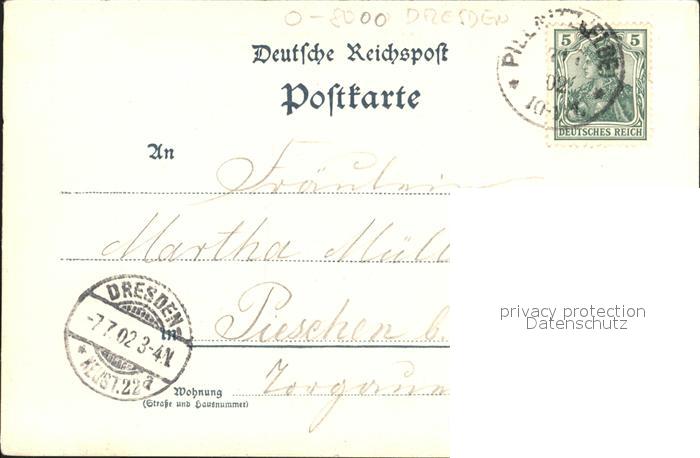 O-8000 DRESDEN
Deutsche Reichspost
Postkarte
5 5
DEUTSCHES REICH
02
An
Fräulein
Martha Müll
DRESDEN
-7.7.02 3-4.N
NEUST. 22a
in Pieschen b.
Wohnung Torgauer
(Straße und Hausnummer)
privacy protection
Datenschutz